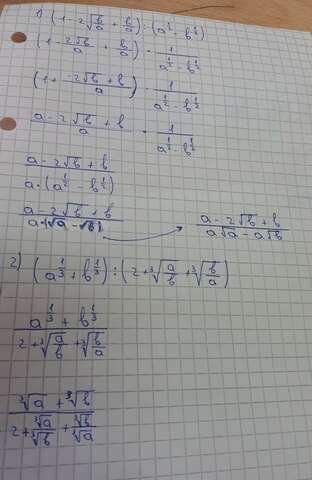 1) (1-2√(b/a) + b/a) : (a^(1/2) - b^(1/2))
(1 - 2√b/a + b/a) · 1/(a^(1/2) - b^(1/2))
(1 + (-2√b + b)/a) · 1/(a^(1/2) - b^(1/2))
(a - 2√b + b)/a · 1/(a^(1/2) - b^(1/2))
(a - 2√b + b)/(a · (a^(1/2) - b^(1/2)))
(a - 2√b + b)/(a · (√a - √b)) → (a - 2√b + b)/(a√a - a√b)
2) (a^(1/3) + b^(1/3)) : (2 + ∛(a/b) + ∛(b/a))
(a^(1/3) + b^(1/3))/(2 + ∛(a/b) + ∛(b/a))
(∛a + ∛b)/(2 + ∛a/∛b + ∛b/∛a)